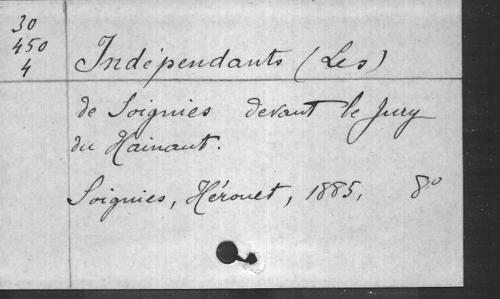 30
450
4
Indépendants (Les)
de Soignies devant le Jury
du Hainaut.
Soignies, Hérouet, 1885, 8°